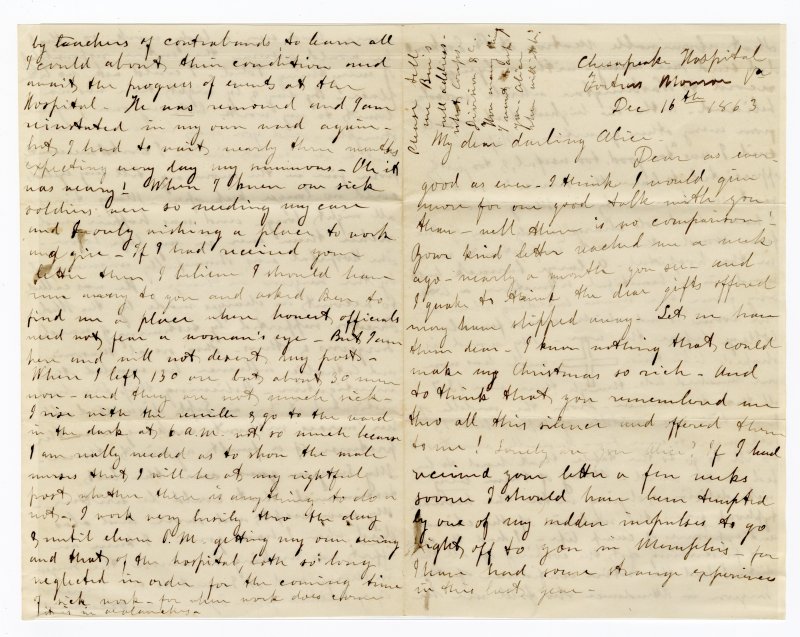 Chesapeake Hospital
Fortress Monroe Va
Dec 16th 1863
My dear darling Alice -
Dear as ever -
good as ever - I think I would give
more for one good talk with you
than - well there is no comparison!
Your kind letter reached me a week
ago - nearly a month you see - and
I quake to think the dear gifts offered
may have slipped away - Let me have
them dear - I know nothing that could
make my Christmas so rich - And
to think that you remembered me
thro all this silence and offered them
to me! Lonely are you Alice? If I had
received your letter a few weeks
sooner I should have been tempted
by one of my sudden impulses to go
right off to you in Memphis - for
I have had some strange experiences
in this last year -
Please tell
me Ben's
full address -
what Corps
Division &c.
by teachers of contrabands, to learn all
I could about their condition and
await the progress of events at the
Hospital - He was removed and I am
reinstated in my own ward again -
but I had to wait nearly three months
expecting every day my summons - Oh it
was weary! When I knew our sick
soldiers were so needing my care
and I only wishing a place to work
and give - If I had received your
letter then I believe I should have
run away to you and asked Ben to
find me a place where honest officials
need not fear a woman's eye - But I am
here and will not desert my post -
When I left 130 are but about 30 men
now - and they are not much sick -
I rise with the reveille & go to the ward
in the dark at 6 A.M. not so much because
I am really needed as to show the male
nurses that I will be at my rightful
post whether there is anything to do or
not - I work very busily thro the day
& until eleven P.M. getting my own sewing
and that of the hospital, both so long
neglected in order for the coming time
of sick work - for when work does come
it is in avalanches -